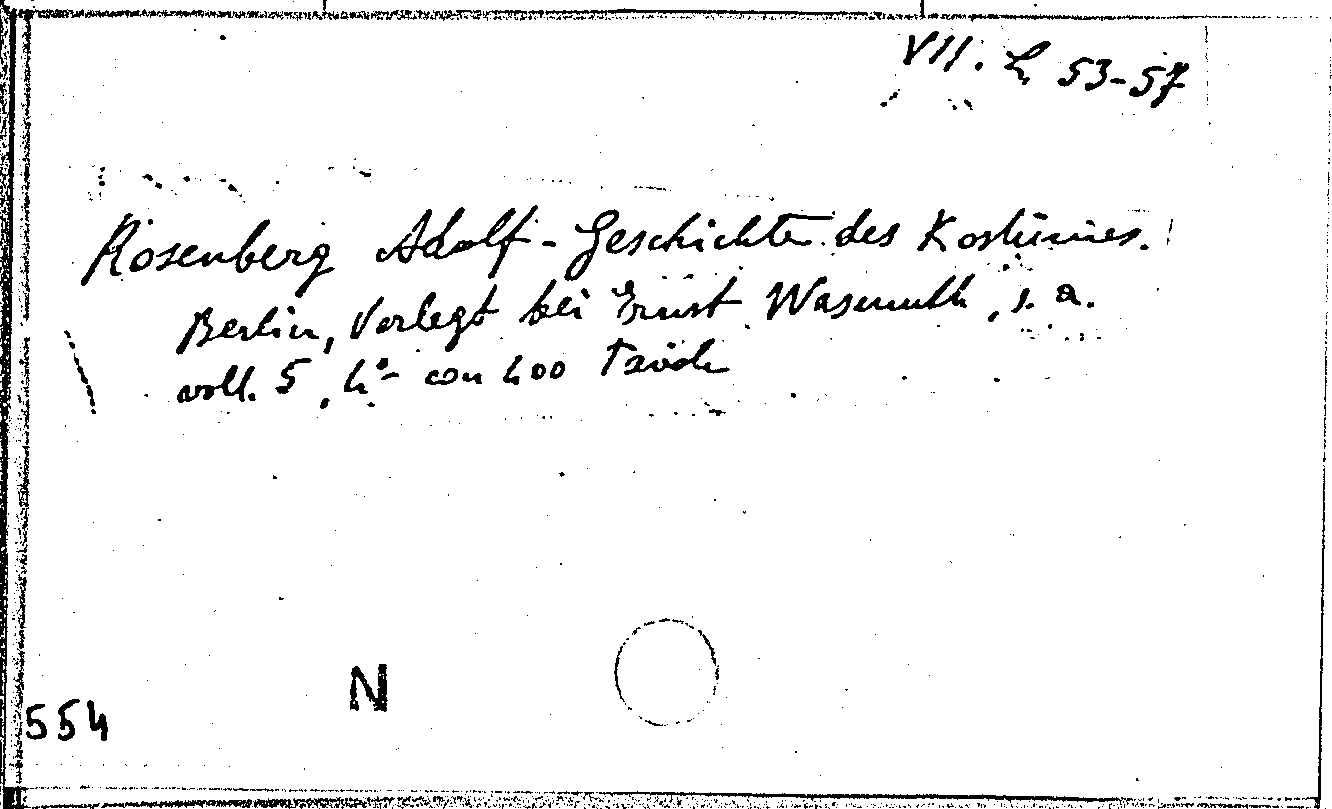 VII. L 53-57
Rosenberg Adolf - Geschichte des Kostümes.
Berlin, Verlegt bei Ernst Wasmuth, s. a.
voll. 5, 4° - con 400 Tavole
N
554